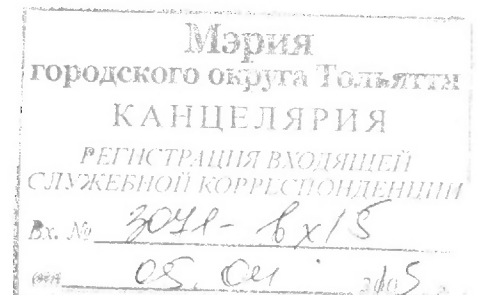 Мэрия
городского округа Тольятти
КАНЦЕЛЯРИЯ
РЕГИСТРАЦИЯ ВХОДЯЩЕЙ
СЛУЖЕБНОЙ КОРРЕСПОНДЕНЦИИ
Вх. № -вх/5
05.04